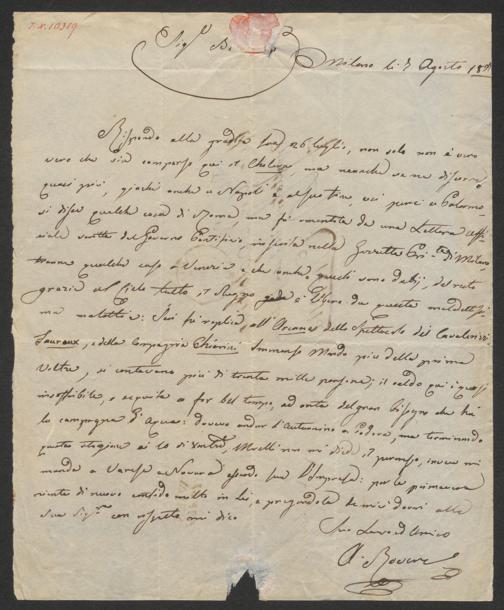 Sig.r
Milano li 7 Agosto
Rispondo alla gradita sua 26 luglio, non solo non è vero
vero che sia comparso qui il Cholera ma neanche se ne discorre
quasi più, giacchè anche a Napoli è al suo fine, ai pure a Palermo
si disse qualche cosa di Roma ma fu smentita da una Lettera uffi-
ciale scritta dal Governo Pontificio, inserita nella Gazzetta di Milano
qualche caso a Venezia e che anche questi sono dubbj, del resto
grazie al Cielo tutto il Regno è libero da questa maledettissi-
ma malattia: Qui fu replica all'Arena dello Spettacolo dei Cavallerizzi
Fouraux, e della Compagnia Chiarini Immenso Mondo più della prima
Volta, si contavano più di trenta mille persone; il caldo qui è quasi
insoffribile, e seguita a far bel tempo, ad onta del gran bisogno che ha
la campagna d'Acqua: dovevo andar l'Autunnino a Padova, ma terminando
questa stagione ai 10 di Merelli non mi diede il permesso, invece mi
manda a Varese e Novara essendo sua l'Impresa: per la primavera
di nuovo confido molto in Lei, e pregandola de miei doveri alla
Sua Sig.ra con rispetto mi dico
Suo Amico
A. Rovere